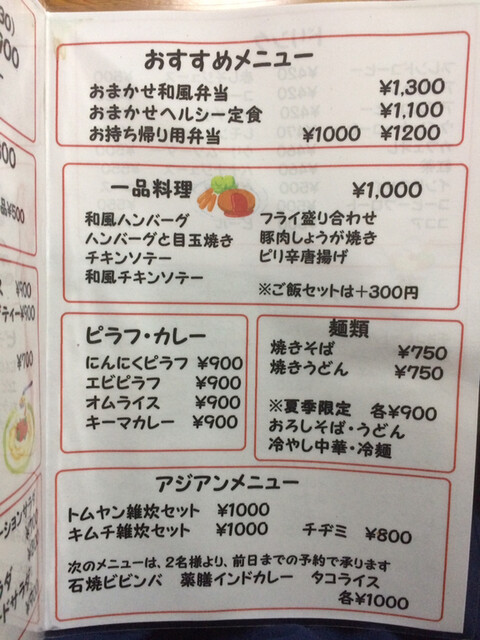 おすすめメニュー
おまかせ和風弁当 ¥1,300
おまかせヘルシー定食 ¥1,100
お持ち帰り用弁当 ¥1000 ¥1200
一品料理 ¥1,000
和風ハンバーグ フライ盛り合わせ
ハンバーグと目玉焼き 豚肉しょうが焼き
チキンソテー ピリ辛唐揚げ
和風チキンソテー
※ご飯セットは+300円
ピラフ・カレー
にんにくピラフ ¥900
エビピラフ ¥900
オムライス ¥900
キーマカレー ¥900
麺類
焼きそば ¥750
焼きうどん ¥750
※夏季限定 各¥900
おろしそば・うどん
冷やし中華・冷麺
アジアンメニュー
トムヤン雑炊セット ¥1000
キムチ雑炊セット ¥1000 チヂミ ¥800
次のメニューは、2名様より、前日までの予約で承ります
石焼ビビンバ 薬膳インドカレー タコライス
各¥1000